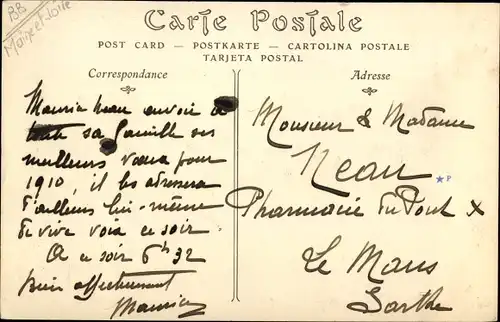 BB
Maine et Loire
Carte Postale
POST CARD — POSTKARTE — CARTOLINA POSTALE
TARJETA POSTAL
Correspondance
Maurice Neau envoie à
toute sa famille ses
meilleurs vœux pour
1910, il les adressera
d'ailleurs lui-même
de vive voix ce soir
A ce soir 6h 32
Bien affectueusement
Maurice
Adresse
Monsieur & Madame
Neau
Pharmacie du Pont x
Le Mans
Sarthe